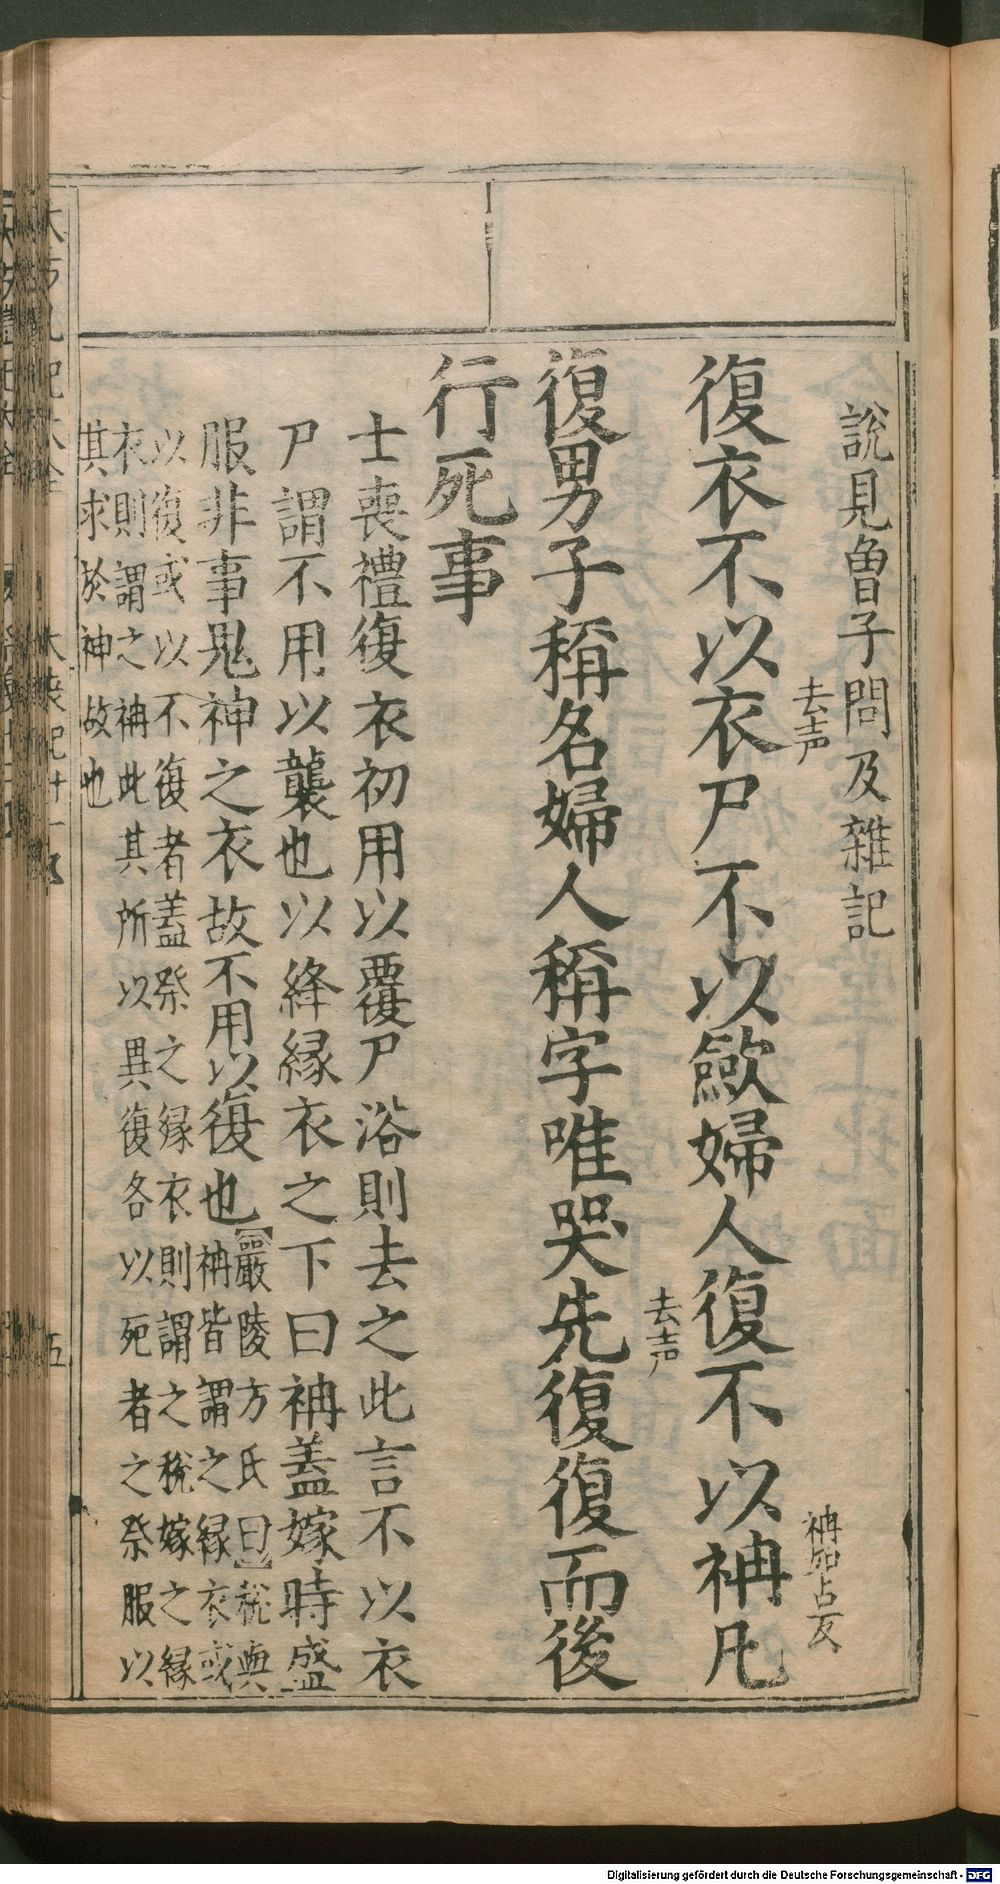 說見魯子問及雜記
復衣不以衣尸不以斂婦人復不以袡凡
去声
袡如占反
復男子稱名婦人稱字唯哭先復復而後
去声
行死事
士喪禮復衣初用以覆尸浴則去之此言不以衣
尸謂不用以襲也以絳緣衣之下曰袡蓋嫁時盛
服非事鬼神之衣故不用以復也
【嚴陵方氏曰】稅與
袡皆謂之緣衣或
以復或以不復者蓋祭之緣衣則謂之稅嫁之緣
衣則謂之袡此其所以異復各以死者之祭服以
其求於神故也
五
Digitalisierung gefördert durch die Deutsche Forschungsgemeinschaft - DFG